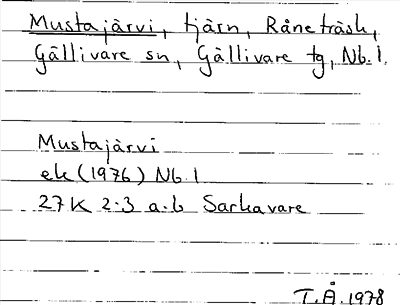 Mustajärvi, tjärn, Råneträsk,
Gällivare sn, Gällivare tg, Nb. l.
Mustajärvi
ek (1976) Nb l
27K 2-3 a-b Sarkavare
T.Å. 1978